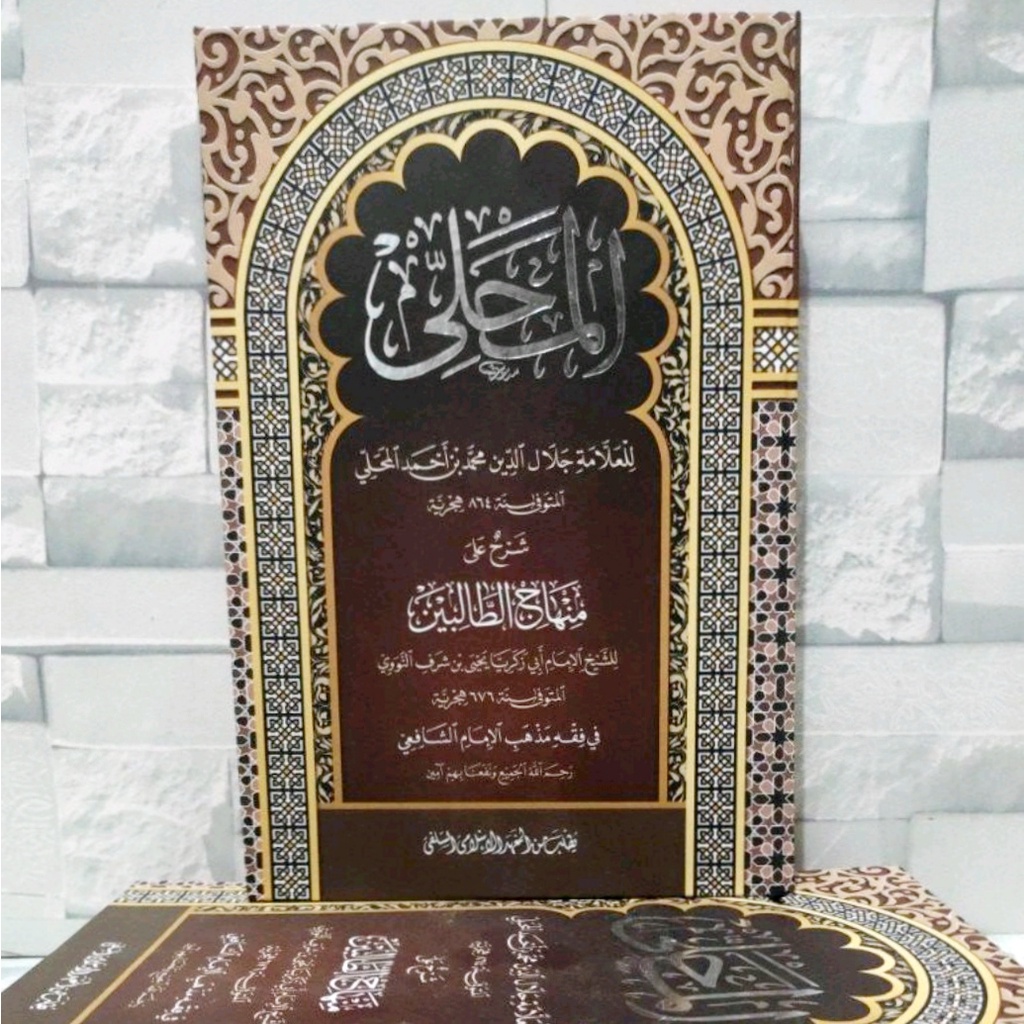 المحلي
للعلامة جلال الدين محمد بن أحمد المحلي
المتوفى سنة ٨٦٤ هجرية
شرح على
منهاج الطالبين
للشيخ الإمام أبي زكريا يحيى بن شرف النووي
المتوفى سنة ٦٧٦ هجرية
في فقه مذهب الإمام الشافعي
رحم الله الجميع ونفعنا بهم آمين
يطلب من المعهد الإسلامي السلفي
منهاج الطالبين